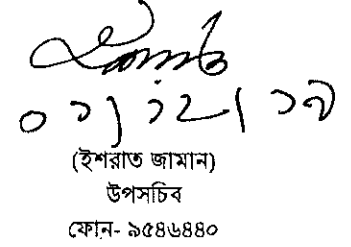 ০১/১২/১৯
(ইশরাত জামান)
উপসচিব
ফোন- ৯৫৪৬৪৪০